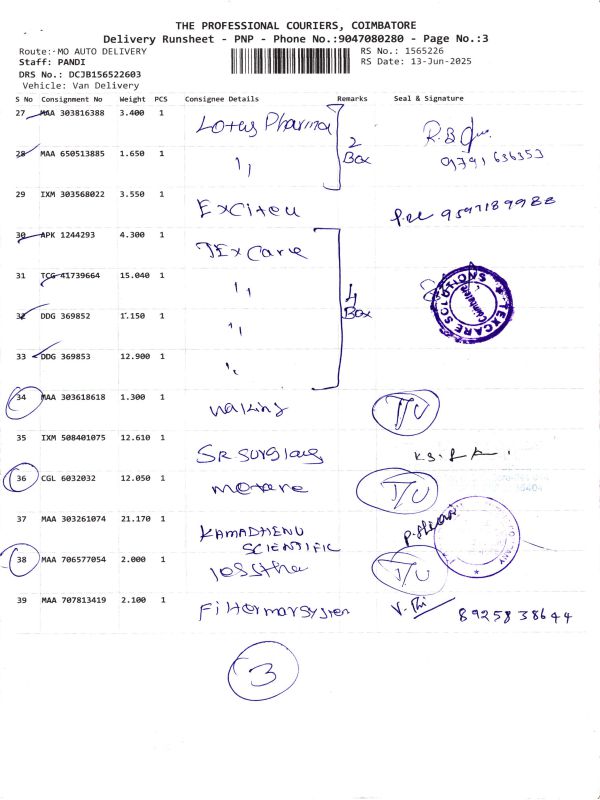 THE PROFESSIONAL COURIERS, COIMBATORE
Delivery Runsheet - PNP - Phone No.:9047080280 - Page No.:3
Route:-MO AUTO DELIVERY RS No.: 1565226
Staff: PANDI RS Date: 13-Jun-2025
DRS No.: DCJB156522603
Vehicle: Van Delivery
S No Consignment No Weight PCS Consignee Details Remarks Seal & Signature
27 MAA 303816388 3.400 1 Lotus Pharma 2 Box
28 MAA 650513885 1.650 1 ,, 9791636353
29 IXM 303568022 3.550 1 9597189988
30 APK 1244293 4.300 1 TEx Care 4 Box
31 TCG 41739664 15.040 1 ,, TEXCARE SOLUTIONS Coimbatore
32 DDG 369852 1.150 1 ,,
33 DDG 369853 12.900 1 ,,
34 MAA 303618618 1.300 1
35 IXM 508401075 12.610 1
36 CGL 6032032 12.050 1
37 MAA 303261074 21.170 1 KAMADHENU SCIENTIFIC
38 MAA 706577054 2.000 1
39 MAA 707813419 2.100 1 8925838644
3